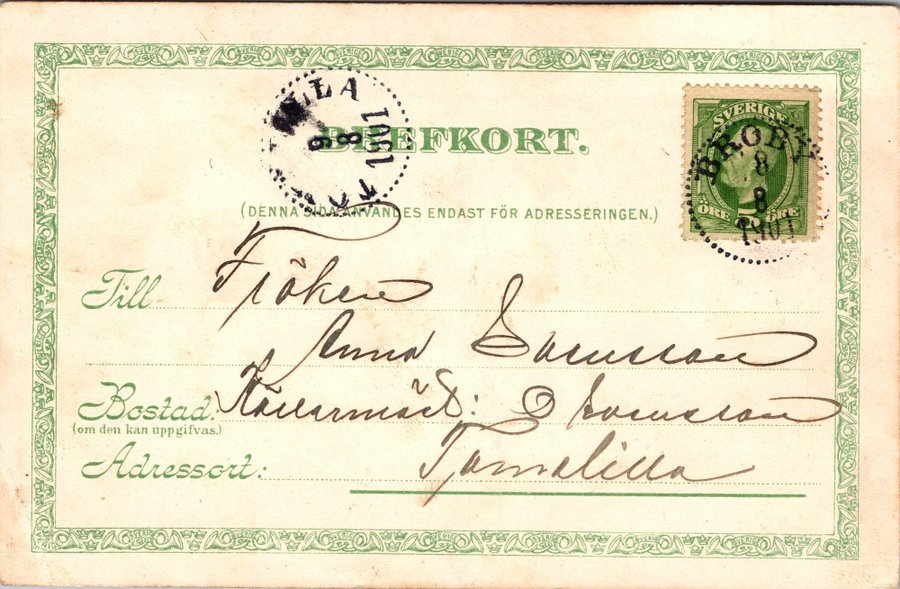 BREFKORT.
(DENNA SIDA ANVÄNDES ENDAST FÖR ADRESSERINGEN.)
SVERIGE
5
ÖRE ÖRE
BROBY
8
8
1901
LLA
1901
8
9
TO
Till Fröken
Anna Svensson
Bostad: Källarmäst: Svensson
(om den kan uppgifvas.)
Adressort: Tomelilla